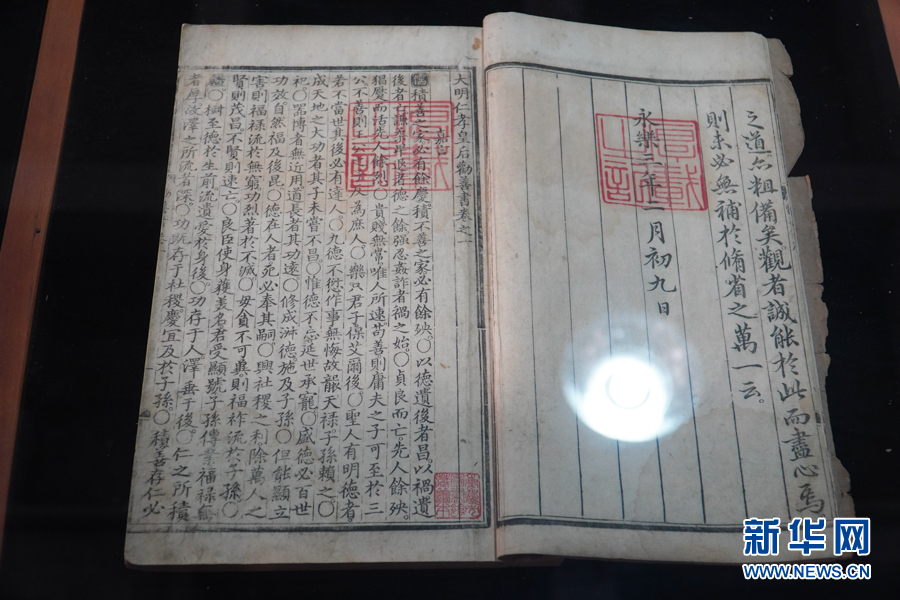 之道亦粗備矣觀者誠能於此而盡心焉
則未必無補於脩省之萬一云。
永樂三年二月初九日
大明仁孝皇后勸善書卷之一
嘉言
積善之家必有餘慶積不善之家必有餘殃。〇以德遺後者昌。以禍遺
後者亡謙柔卑退者德之餘强忍姦詐者禍之始〇貞良而亡。先人餘殃。
猖蹶而活先人餘烈。〇貴賤無常唯人所速苟善則庸夫之子可至於三
公不善則王公之子反為庶人。〇樂只君子保艾爾後。〇聖人有明德者
若不當世其後必有達人。〇九德不愆作事無悔故襲天禄。子孫賴之。〇
成天地之大功者其子未嘗不昌〇惟德不忘延世承寵。〇盛德必百世
祀〇器博者無近用道長者其功遠〇修成淋德施及子孫〇但能顯立
功效自然福及後昆〇德在人者死必奉其嗣。〇興社稷之利除萬人之
害則福禄流於無窮功烈著於不滅〇毋貪不可異則福祚流于子孫〇
賢則茂昌不賢則速亡〇良臣使身荷美名君受顯號子孫傳業福禄無
疆。〇樹至德於生前流遺愛於身後〇功存于人澤垂于後。〇仁之所積
者厚故澤之所流者深〇功既存于社稷慶宜及於子孫。〇積善存仁必
新华网
WWW.NEWS.CN